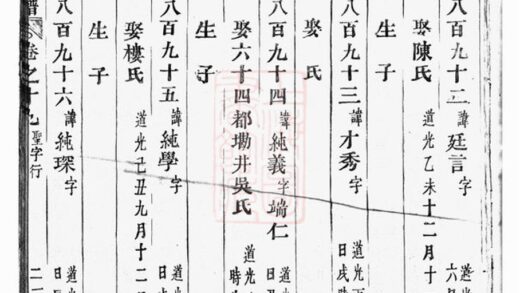 八百九十二 諱廷言字 道光
娶陳氏 道光乙未十二月十
生子
八百九十三 諱才秀字 道光 日戌時
娶氏
生子
八百九十四 諱純義字端仁 道光 日丑
娶六十四都塘井吳氏 道光 時
生子
八百九十五 諱純學字 道光 日戌
娶樓氏 道光己丑九月十二
生子
八百九十六 諱純琛字 道光 日
譜 卷之十九 聖字行